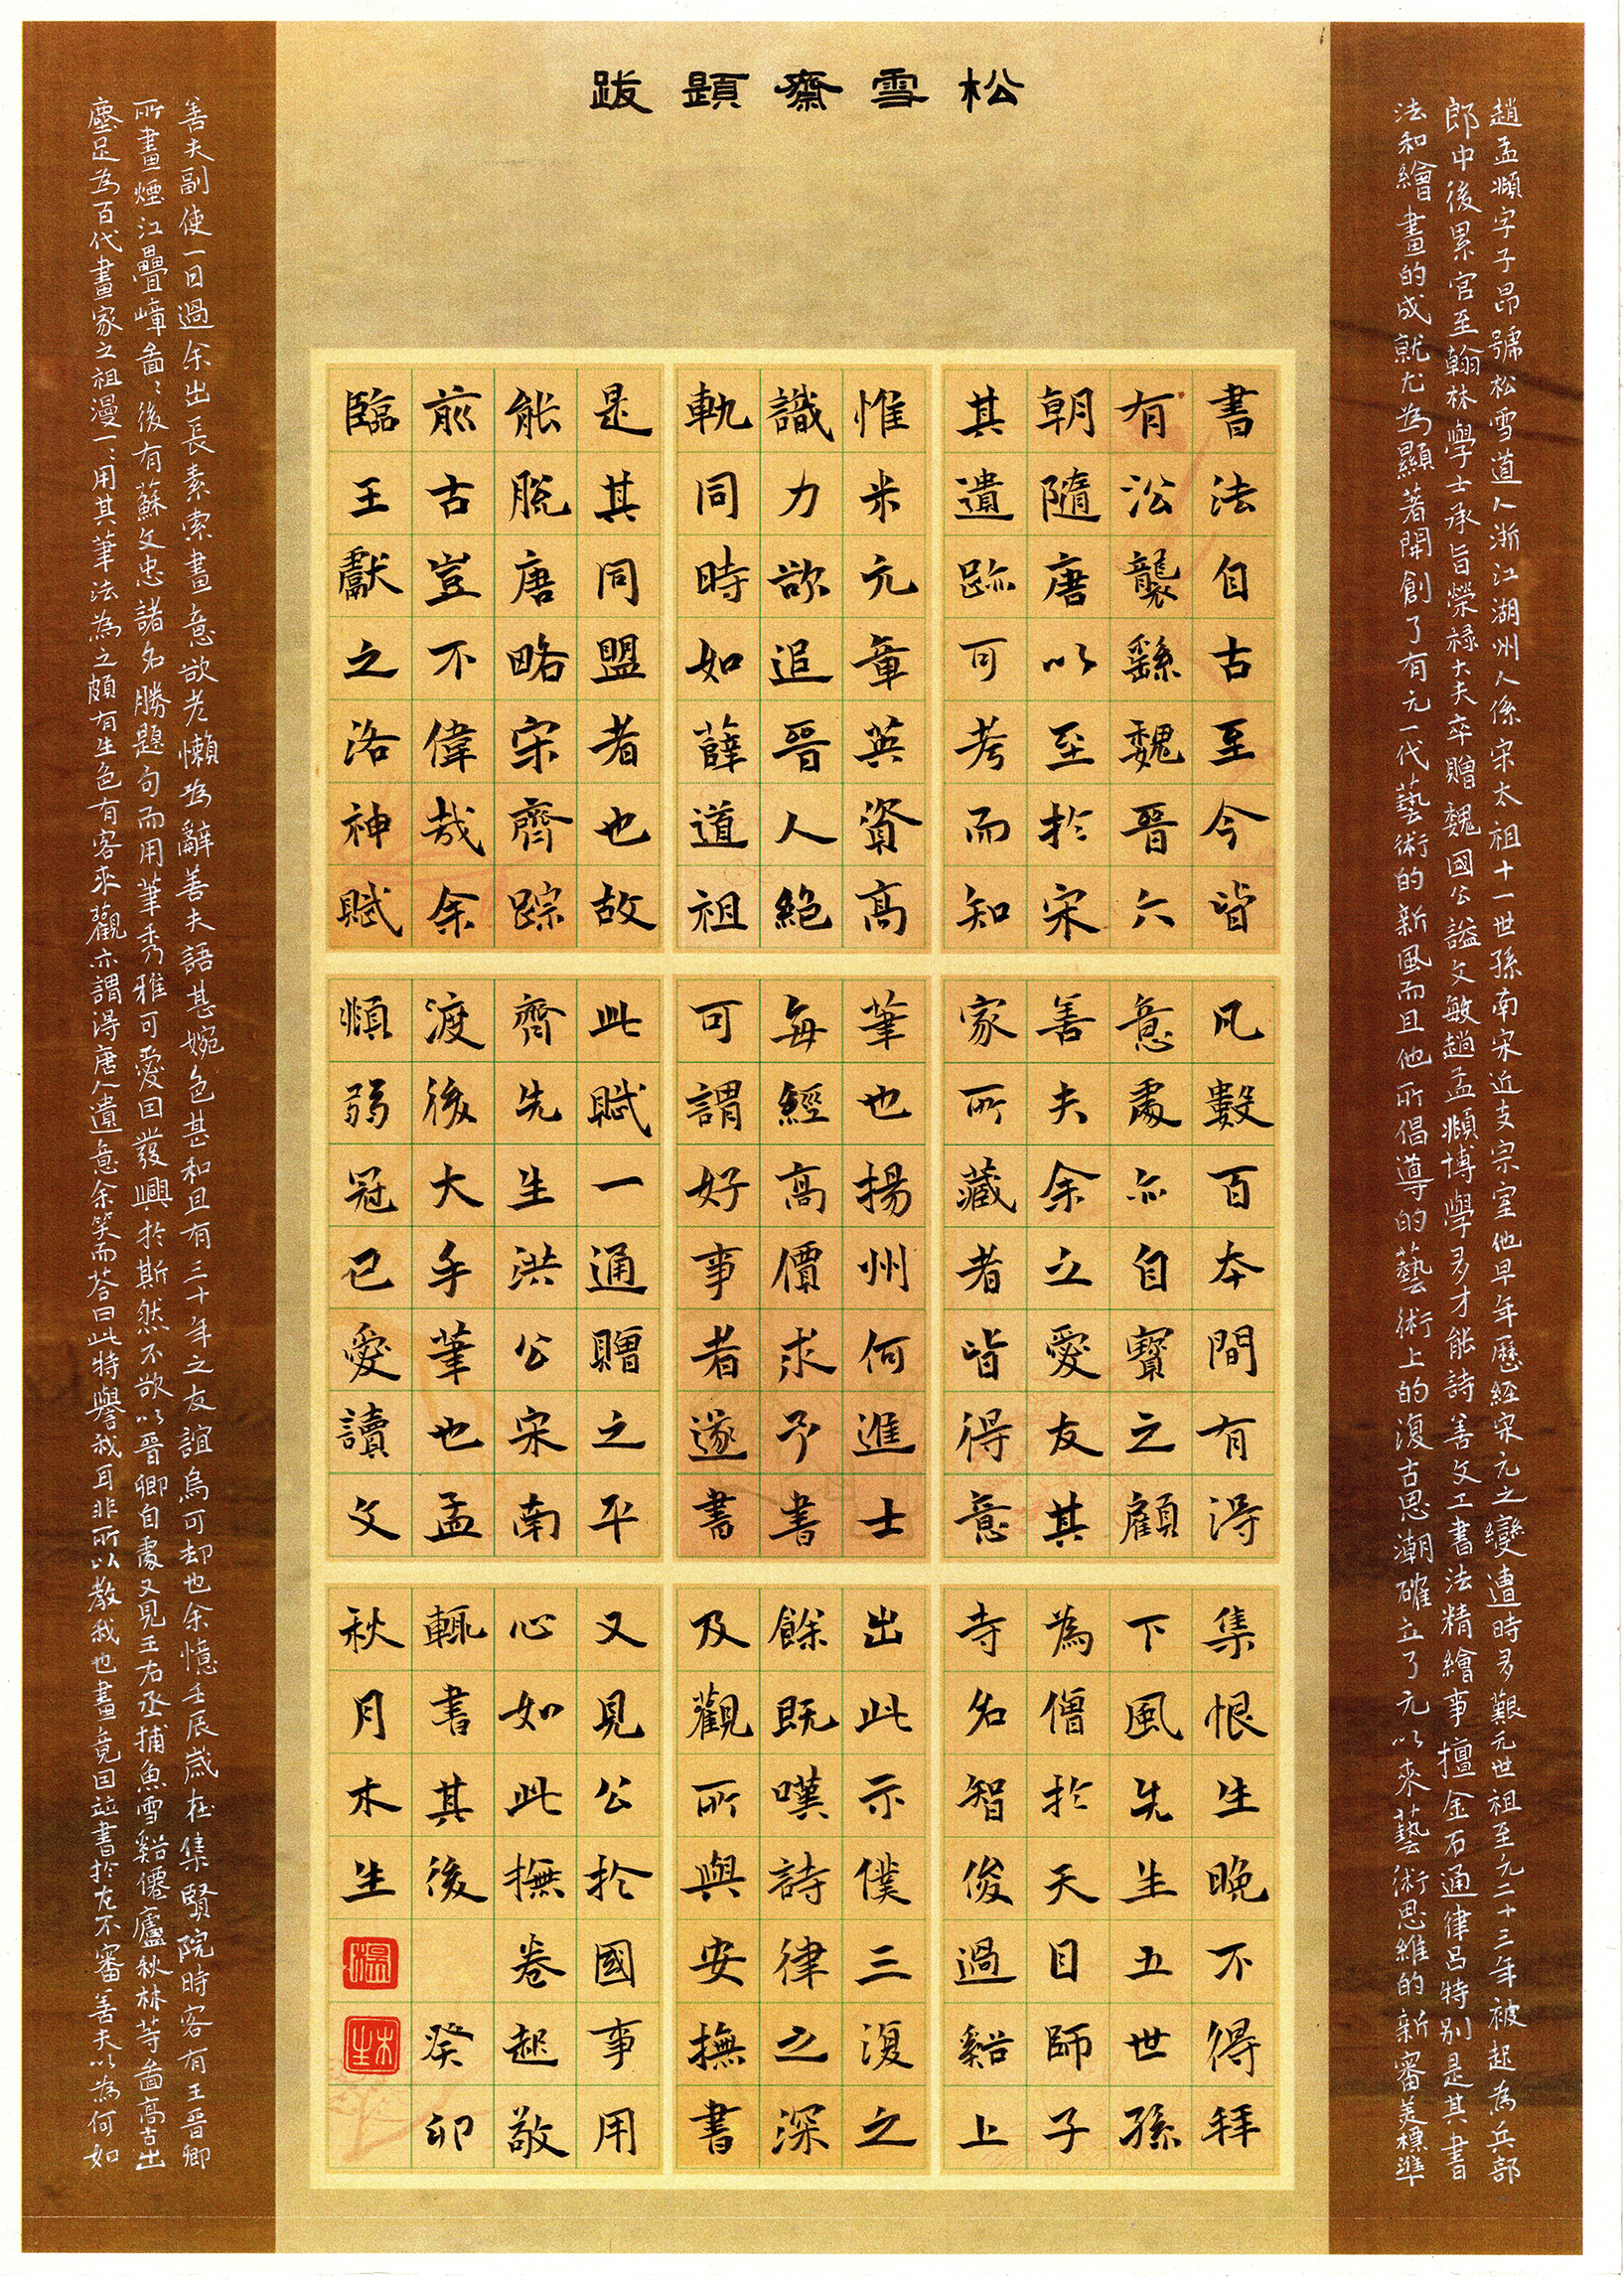 松雪齋題跋
趙孟頫字子昂號松雪道人浙江湖州人係宋太祖十一世孫南宋近支宗室他早年歷經宋元之變遭時多艱元世祖至元二十三年被起為兵部
郎中後累官至翰林學士承旨榮祿大夫卒贈魏國公謚文敏趙孟頫博學多才能詩善文工書法精繪事擅金石通律呂特別是其書
法和繪畫的成就尤為顯著開創了有元一代藝術的新風而且他所倡導的藝術上的復古思潮確立了元以來藝術思維的新審美標準
書法自古至今皆
有㳂襲繇魏晉六
朝隨唐以至於宋
其遺跡可考而知
惟米元章英資高
識力欲追晉人絕
軌同時如薛道祖
是其同盟者也故
能脫唐略宋齊踪
前古豈不偉哉余
臨王獻之洛神賦
凡數百本間有得
意處亦自寶之顧
善夫余之愛友其
家所藏者皆得意
筆也揚州何進士
每經高價求予書
可謂好事者遂書
此賦一通贈之平
齊先生洪公宋南
渡後大手筆也孟
頫弱冠已愛讀文
集恨生晚不得拜
下風先生五世孫
為僧於天目師子
寺名智俊過谿上
出此示僕三復之
餘既嘆詩律之深
及觀所與安撫書
又見公於國事用
心如此撫卷起敬
輒書其後 癸卯
秋月木生
溫
木生
善夫副使一日過余出長素索畫意欲老懶為辭善夫語甚婉色甚和且有三十年之友誼烏可却也余憶壬辰歲在集賢院時客有王晉卿
所畫煙江疊嶂畵ミ後有蘇文忠諸名勝題句而用筆秀雅可愛因發興於斯然不欲以晉卿自處又見王右丞捕魚雪谿僊廬秋林等畵高古出
塵足為百代畫家之祖漫一ミ用其筆法為之頗有生色有客來觀亦謂得唐人遺意余笑而答曰此特譽我耳非所以教我也畫竟因並書於左不審善夫以為何如